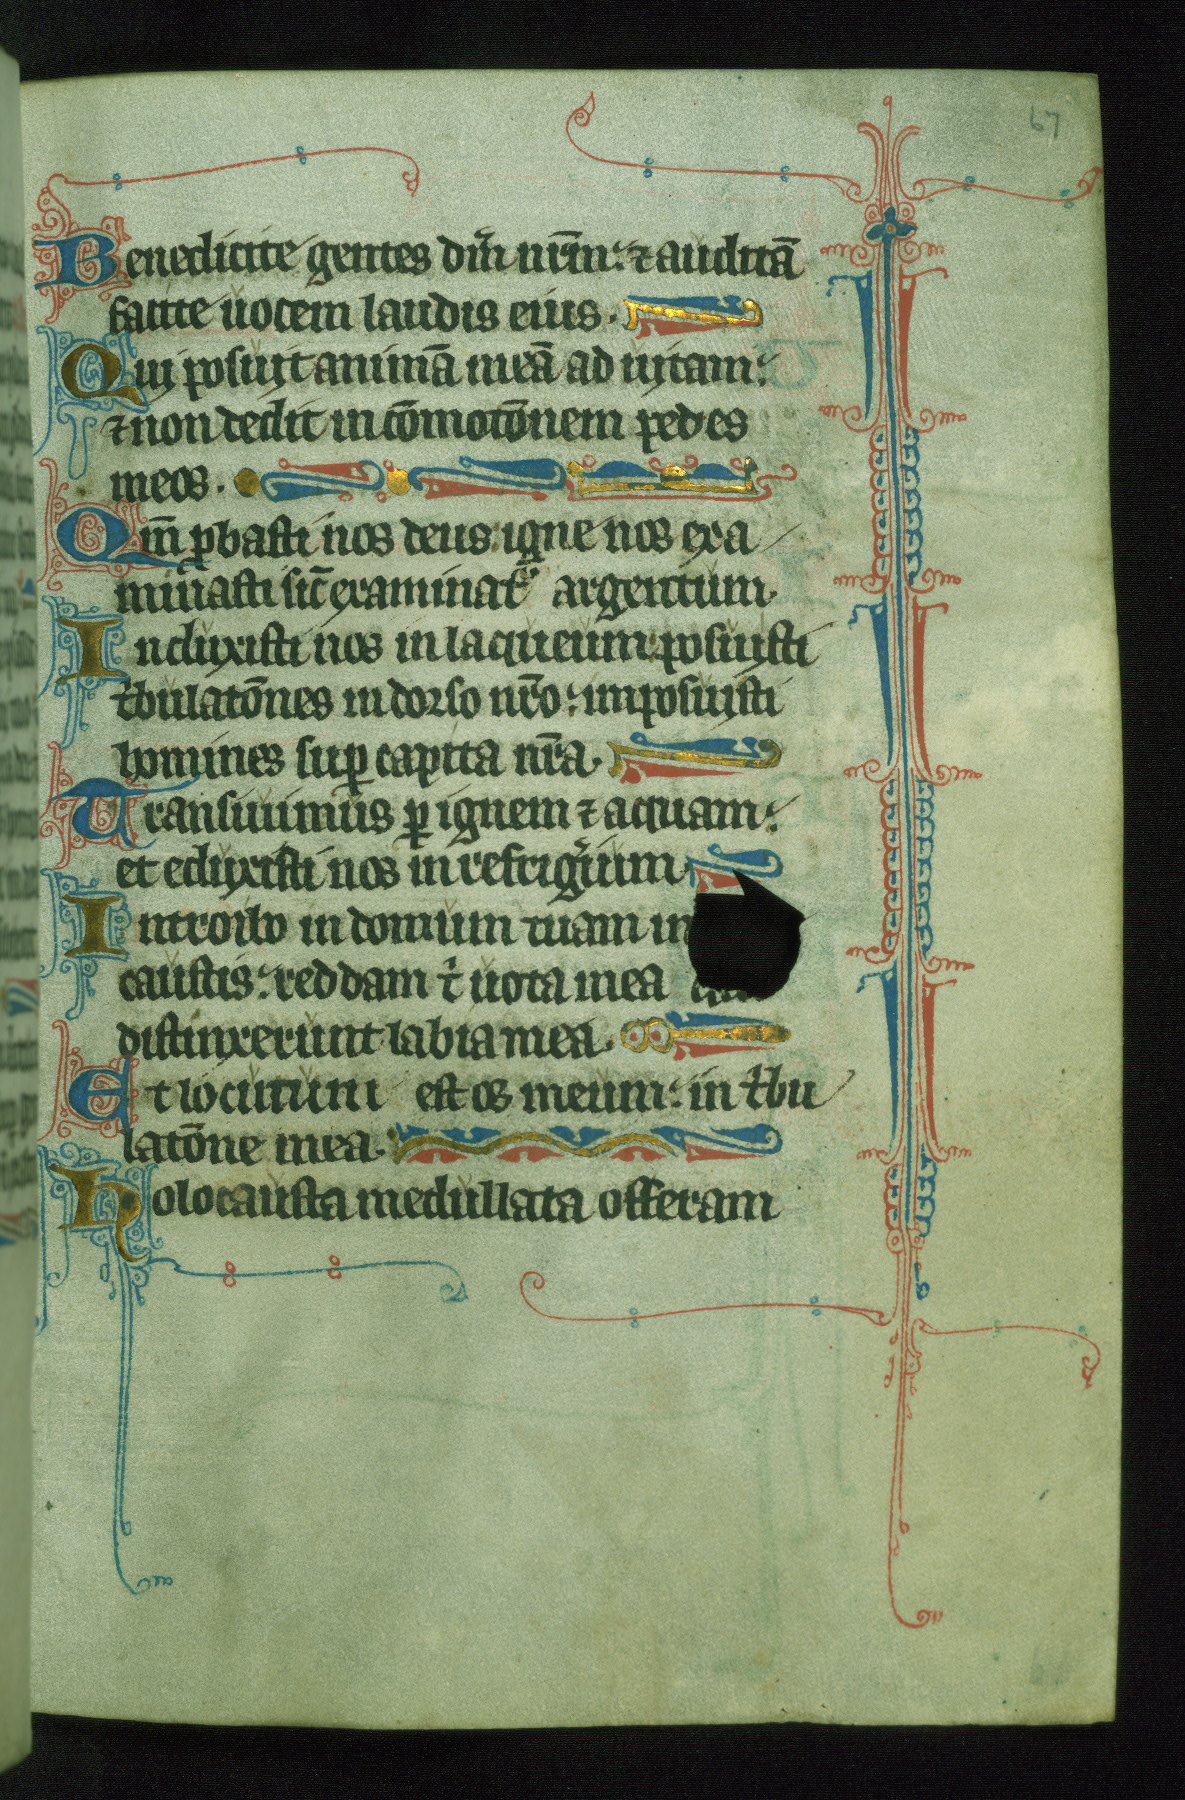 67
Benedicite gentes dm̄ nrm̄: ⁊ auditā
facite uocem laudis eius.
Qui posuit animā meā ad uitam:
⁊ non dedit in cōmotōnem pedes
meos.
Qm̄ ꝓbasti nos deus: igne nos exa
minasti sic̄ examinat᷑ argentum
Induxisti nos in laqueum: posuisti
t͛bulatōnes in dorso nr̄o: imposuisti
homines suꝑ capita nr̄a.
Transiuimus ꝑ ignem ⁊ aquam:
et eduxisti nos in refrig͛ium.
Introibo in domum tuam in
caustis: reddam t̄ uota mea
distinxerunt labia mea.
Et locutum est os meum: in t͛bu
latōne mea.
Holocausta medullata offeram